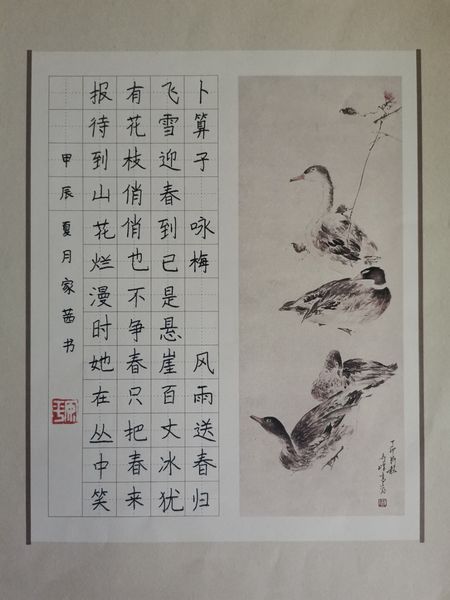 卜算子 咏梅 风雨送春归
飞雪迎春到已是悬崖百丈冰犹
有花枝俏俏也不争春只把春来
报待到山花烂漫时她在丛中笑
甲辰夏月家茜书